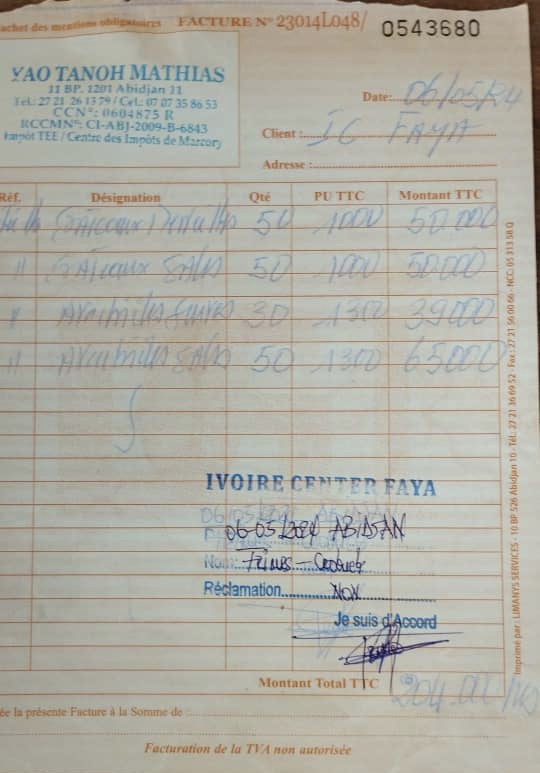 achet des mentions obligatoires FACTURE N° 23014L048/ 0543680
YAO TANOH MATHIAS
11 BP. 1201 Abidjan 11
Tél.: 27 21 26 13 79 / Cel.: 07 07 35 86 53
CCN°: 0604875 R
RCCMN°: CI-ABJ-2009-B-6843
Impôt TEE / Centre des Impôts de Marcory
Date: 06/05/24
Client : IC FAYA
Adresse :
Réf. Désignation Qté PU TTC Montant TTC
50 1000 50.000
" Gâteaux Salés 50 1000 50.000
" 30 1300 39.000
" 50 1300 65000
IVOIRE CENTER FAYA
06-05/2024 ABIDJAN
Nom:
Réclamation NON
Je suis d'Accord
Montant Total TTC 204.000
ée la présente Facture à la Somme de :
Facturation de la TVA non autorisée
Imprimé par : LIMANYS SERVICES - 10 BP 526 Abidjan 10 - Tél.: 27 21 36 69 52 - Fax : 27 21 56 00 66 - NCC: 05 313 58 Q